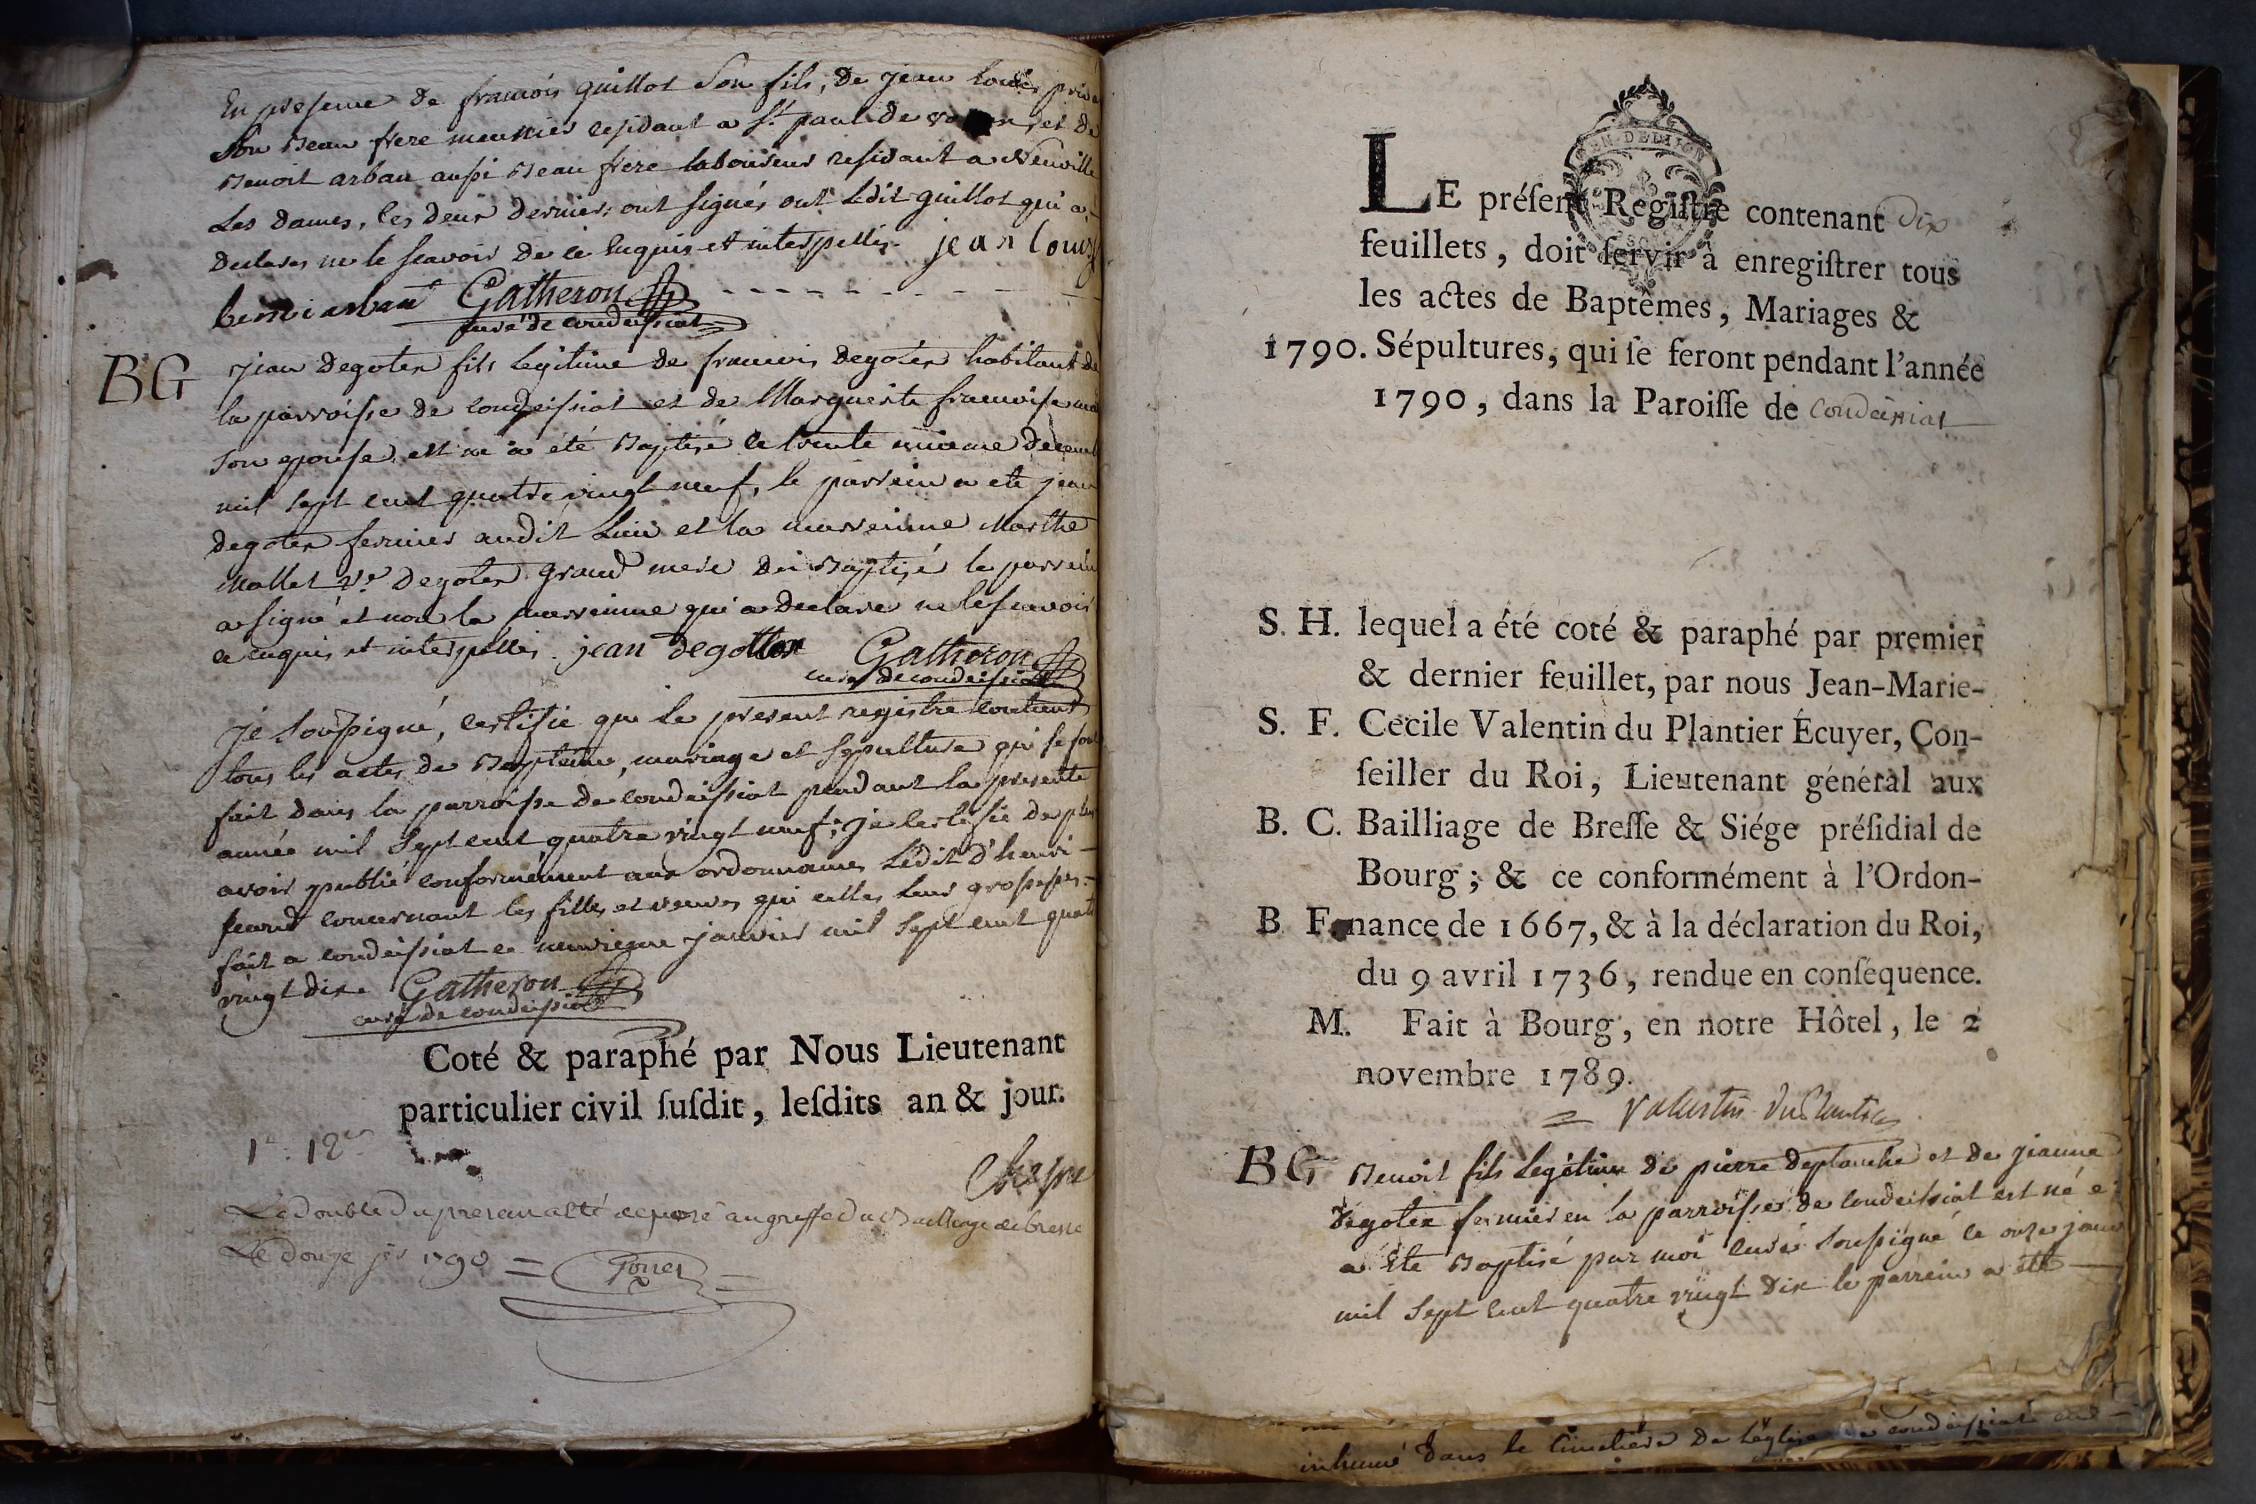 En presence de francois guillot Son fils, de jean louis
Son Beau frere meunier residant a St paul de et de
Benoit arban aussi Beau frere laboureur residant a Neuville
Les dames, les deux derniers ont signés ont Ledit guillot qui a
declarer ne le scavoir de ce Enquis et interpellés. jean louis
benoi arban Gatheron
curé de condeissiat
BG jean degoter fils Legitime de francois degoter habitant de
la parroisse de condeissiat et de Marguerite francoise
son epouse est né a été Baptisé le trente unieme
mil sept cent quatre vingt neuf, le parrein a eté jean
degoter fermier audit Lieu et la marreinne Marthe
Mallet Ve Degoter grand mere du Baptisé le parrein
a signé et non la marreinne qui a declare ne le scavoir
ce enquis et interpellés. jean degotter Gatheron
curé de condeissiat
je soussigné, certifie que le present registre contient
tous les actes de Bapteme, mariage et sepulture qui se sont
fait dans la parroisse de condeissiat pendant la presente
année mil sept cent quatre vingt neuf; je certifie de plus
avoir publié conformément aux ordonnances L'édit d'henri
second concernant les filles et veuves qui celles leur grossesses.
fait a condeissiat ce janvier mil sept cent quatre
vingt dix. Gatheron
curé de condeissiat
Coté & paraphé par Nous Lieutenant
particulier civil ſuſdit, leſdits an & jour.
Le double du present a été deposé au greffe du Bailliage de bresse
Le douze jer 1790
LE préſent Regiſtre contenant dix
feuillets, doit ſervir à enregiſtrer tous
les actes de Baptêmes, Mariages &
1790. Sépultures, qui ſe feront pendant l'année
1790, dans la Paroiſſe de condeissiat
S. H. lequel a été coté & paraphé par premier
& dernier feuillet, par nous Jean-Marie-
S. F. Cecile Valentin du Plantier Écuyer, Con-
ſeiller du Roi, Lieutenant général aux
B. C. Bailliage de Breſſe & Siége préſidial de
Bourg; & ce conformément à l'Ordon-
B F. nance de 1667, & à la déclaration du Roi,
du 9 avril 1736, rendue en conſéquence.
M. Fait à Bourg, en notre Hôtel, le 2
novembre 1789.
Valentin duplantier
BG Benoit fils Legétime de pierre deplanche et de jeanne
degoter fermier en la parroisse de condeissiat est né e
a Ete Baptisé par moi curé soussigné le onze
mil sept cent quatre vingt dix le parrein a eté
inhumé dans le Cimetiere de L'eglise de condeissiat